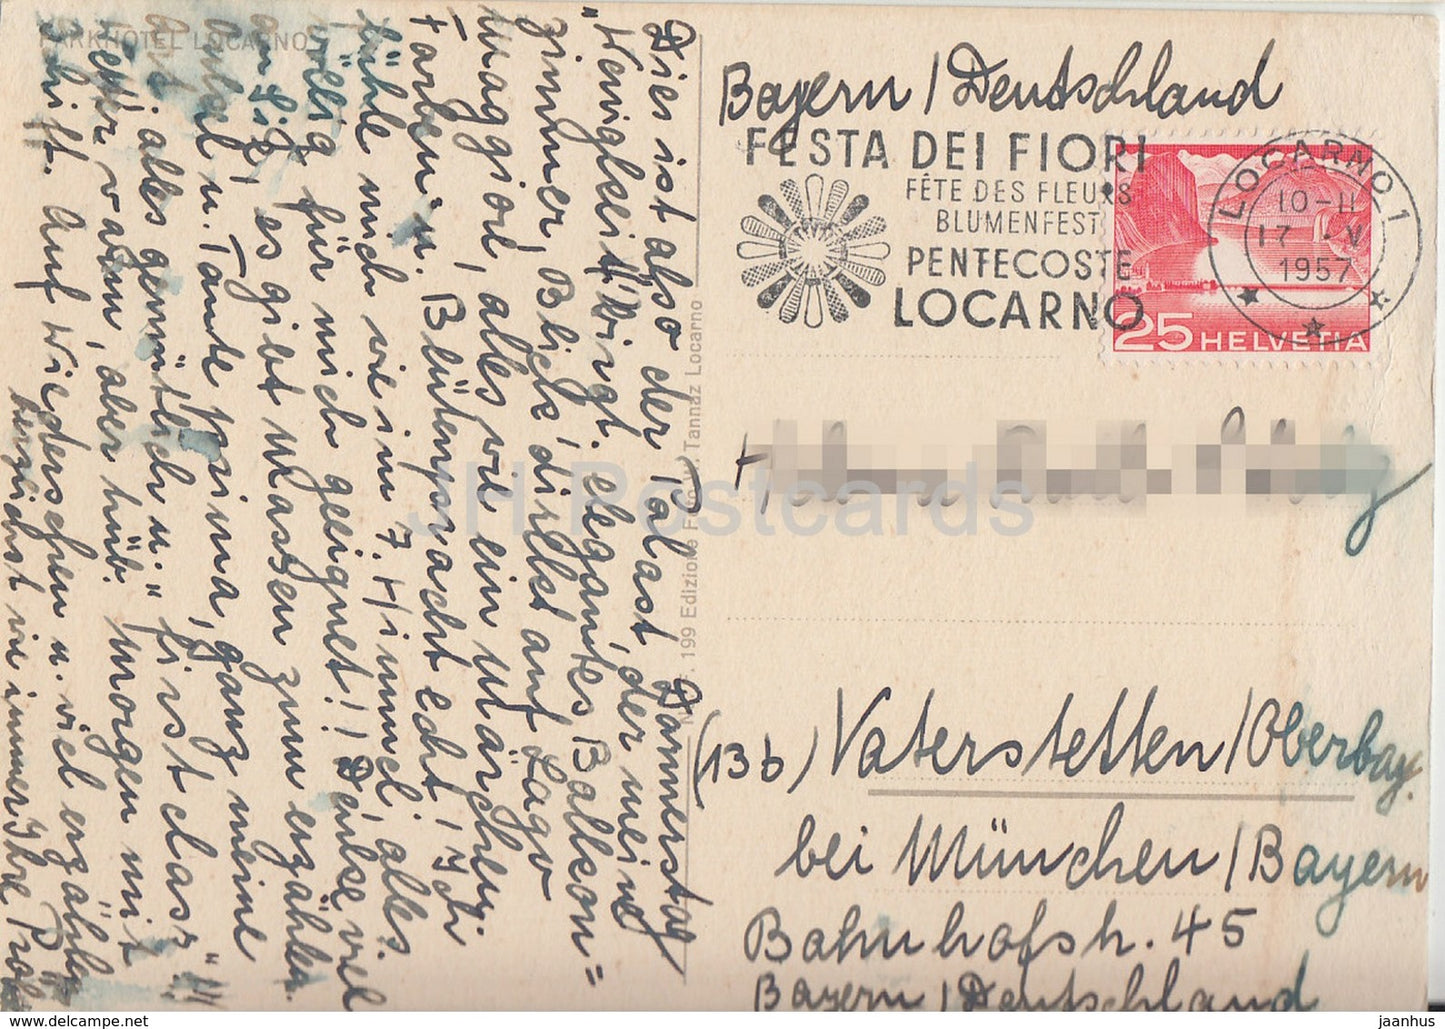 PARKHOTEL LOCARNO
Donnerstag
Dies ist also der Palast, der meine
"Wenigkeit" birgt. elegantes Balkon=
zimmer, Blick direkt auf Lago
Maggiore, alles wie ein Märchen.
Farben- u. Blütenpracht echt! Ich
fühle mich wie im 7. Himmel, alles
völlig für mich geeignet!! Denke viel
an Sie, es gibt Massen zum erzählen.
Onkel u. Tante prima, ganz meine
alles gemütlich u. "first class"!!
Wetter vagen, aber hüb. Morgen mit
Schiff. Auf Wiedersehen u. viel erzählen
herzlichst wie immer Ihre
No. 199 Edizione Foto Tannaz Locarno
Bayern / Deutschland
FESTA DEI FIORI
FÊTE DES FLEURS
BLUMENFEST
PENTECOSTE
LOCARNO
LOCARNO 1
10-11
17 . V
1957
25 HELVETIA
JH Postcards
(13b) Vaterstetten / Oberbay.
bei München / Bayern
Bahnhofstr. 45
Bayern / Deutschland
hip-postcard.com jaanhus